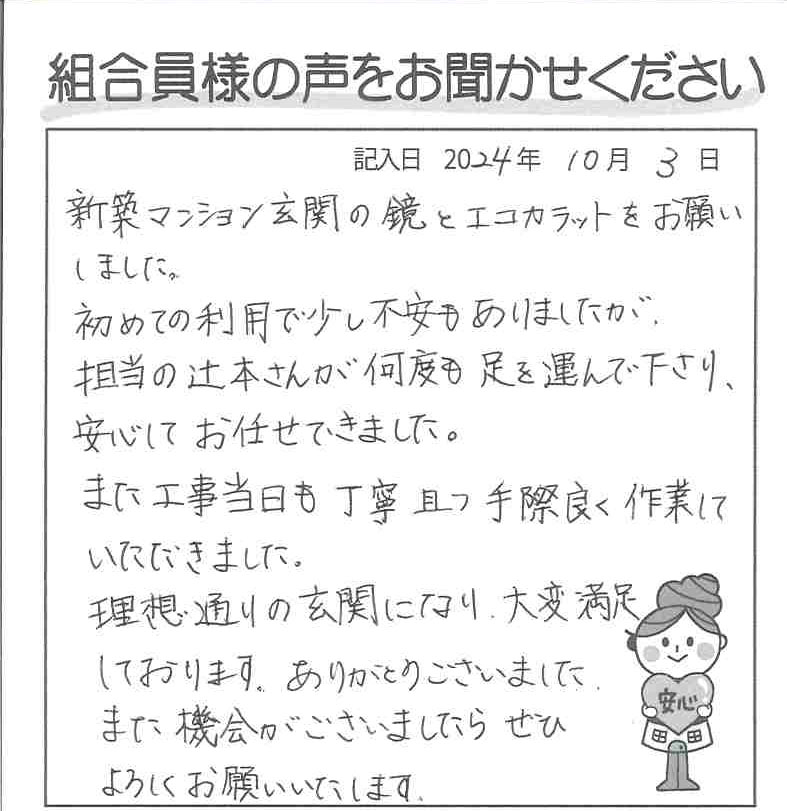 組合員様の声をお聞かせください
記入日 2024年 10月 3日
新築マンション玄関の鏡とエコカラットをお願い
しました。
初めての利用で少し不安もありましたが、
担当の辻本さんが何度も足を運んで下さり、
安心してお任せできました。
また工事当日も丁寧且つ手際良く作業して
いただきました。
理想通りの玄関になり、大変満足
しております。ありがとうございました。
また機会がございましたらぜひ
よろしくお願いいたします。
安心